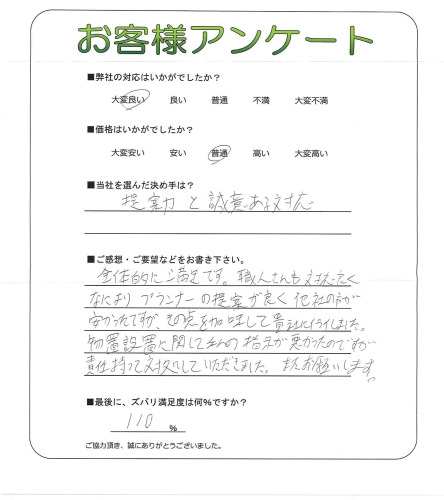 お客様アンケート
■弊社の対応はいかがでしたか？
大変良い 良い 普通 不満 大変不満
■価格はいかがでしたか？
大変安い 安い 普通 高い 大変高い
■当社を選んだ決め手は？
提案力と誠意ある対応
■ご感想・ご要望などをお書き下さい。
全体的に満足です。職人さんも対応良く
なにより プランナーの提案が良く 他社の方が
安かったですが、その点を加味して貴社にイライしました。
物置設置に関して私の指示が悪かったのですが
責任持って対処していただきました。またお願いします
■最後に、ズバリ満足度は何%ですか？
110 %
ご協力頂き、誠にありがとうございました。